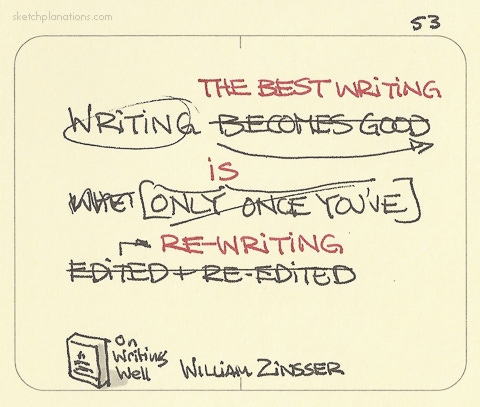 sketchplanations.com
53
THE BEST WRITING
WRITING BECOMES GOOD
IS
[ONLY ONCE YOU'VE]
RE-WRITING
EDITED + RE-EDITED
On
Writing
Well
WILLIAM ZINSSER